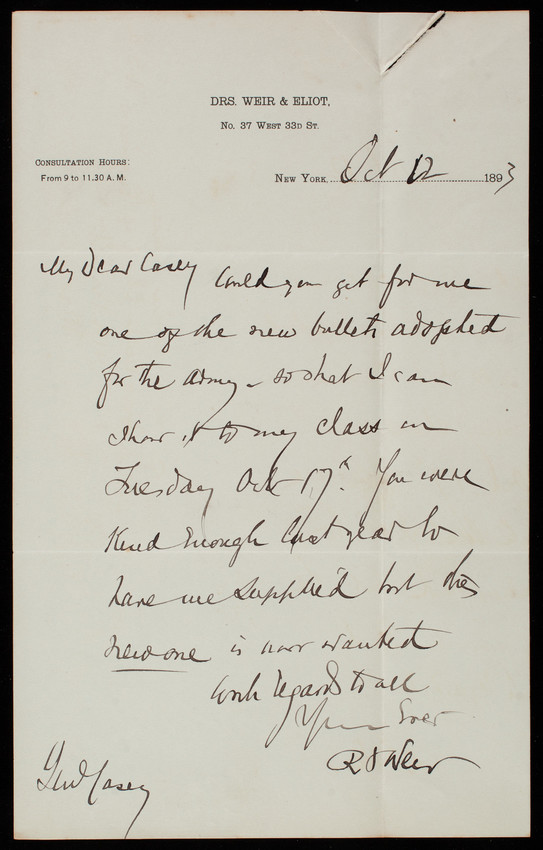 DRS. WEIR & ELIOT,
No. 37 West 33D St.
Consultation Hours:
From 9 to 11.30 A. M.
New York, Oct 12 1893
My Dear Casey Could you get for me
one of the new bullets adopted
for the army - so that I can
show it to my class on
Tuesday Oct 17th. You were
Kind Enough last year to
have me supplied but the
new one is now wanted
With regards to all
Yours Ever
R F Weir
Genl Casey